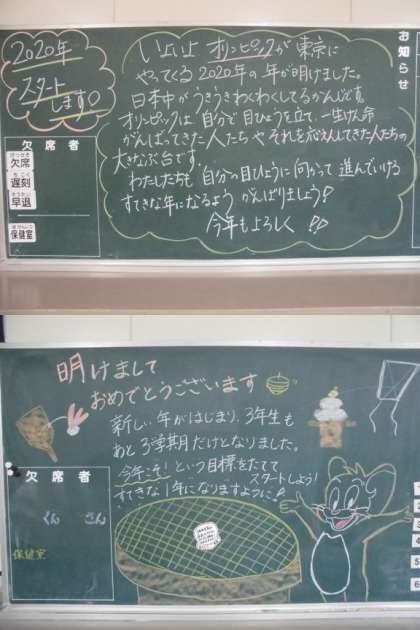 2020年
スタート
します○
お知らせ
いよいよ オリンピックが 東京に
やってくる 2020年の 年が明けました。
日本中が うきうきわくわくしてるかんじです。
オリンピックは 自分で 目ひょうを立て、一生けん命
がんばってきた 人たちや それを応えんしてきた人たちの
大きなぶ台です。
わたしたちも 自分の目ひょうに 向かって 進んでいける
すてきな年になるよう がんばりましょう!
今年もよろしく !!
欠席者
けっせき
欠席
ちこく
遅刻
そうたい
早退
ほけんしつ
保健室
明けまして
おめでとうございます
新しい年がはじまり、3年生も
あと3学期だけとなりました。
今年こそ!という目標をたてて
スタートしよう!
すてきな1年になりますように!!
欠席者
くん さん
保健室
1
2
3
4
5